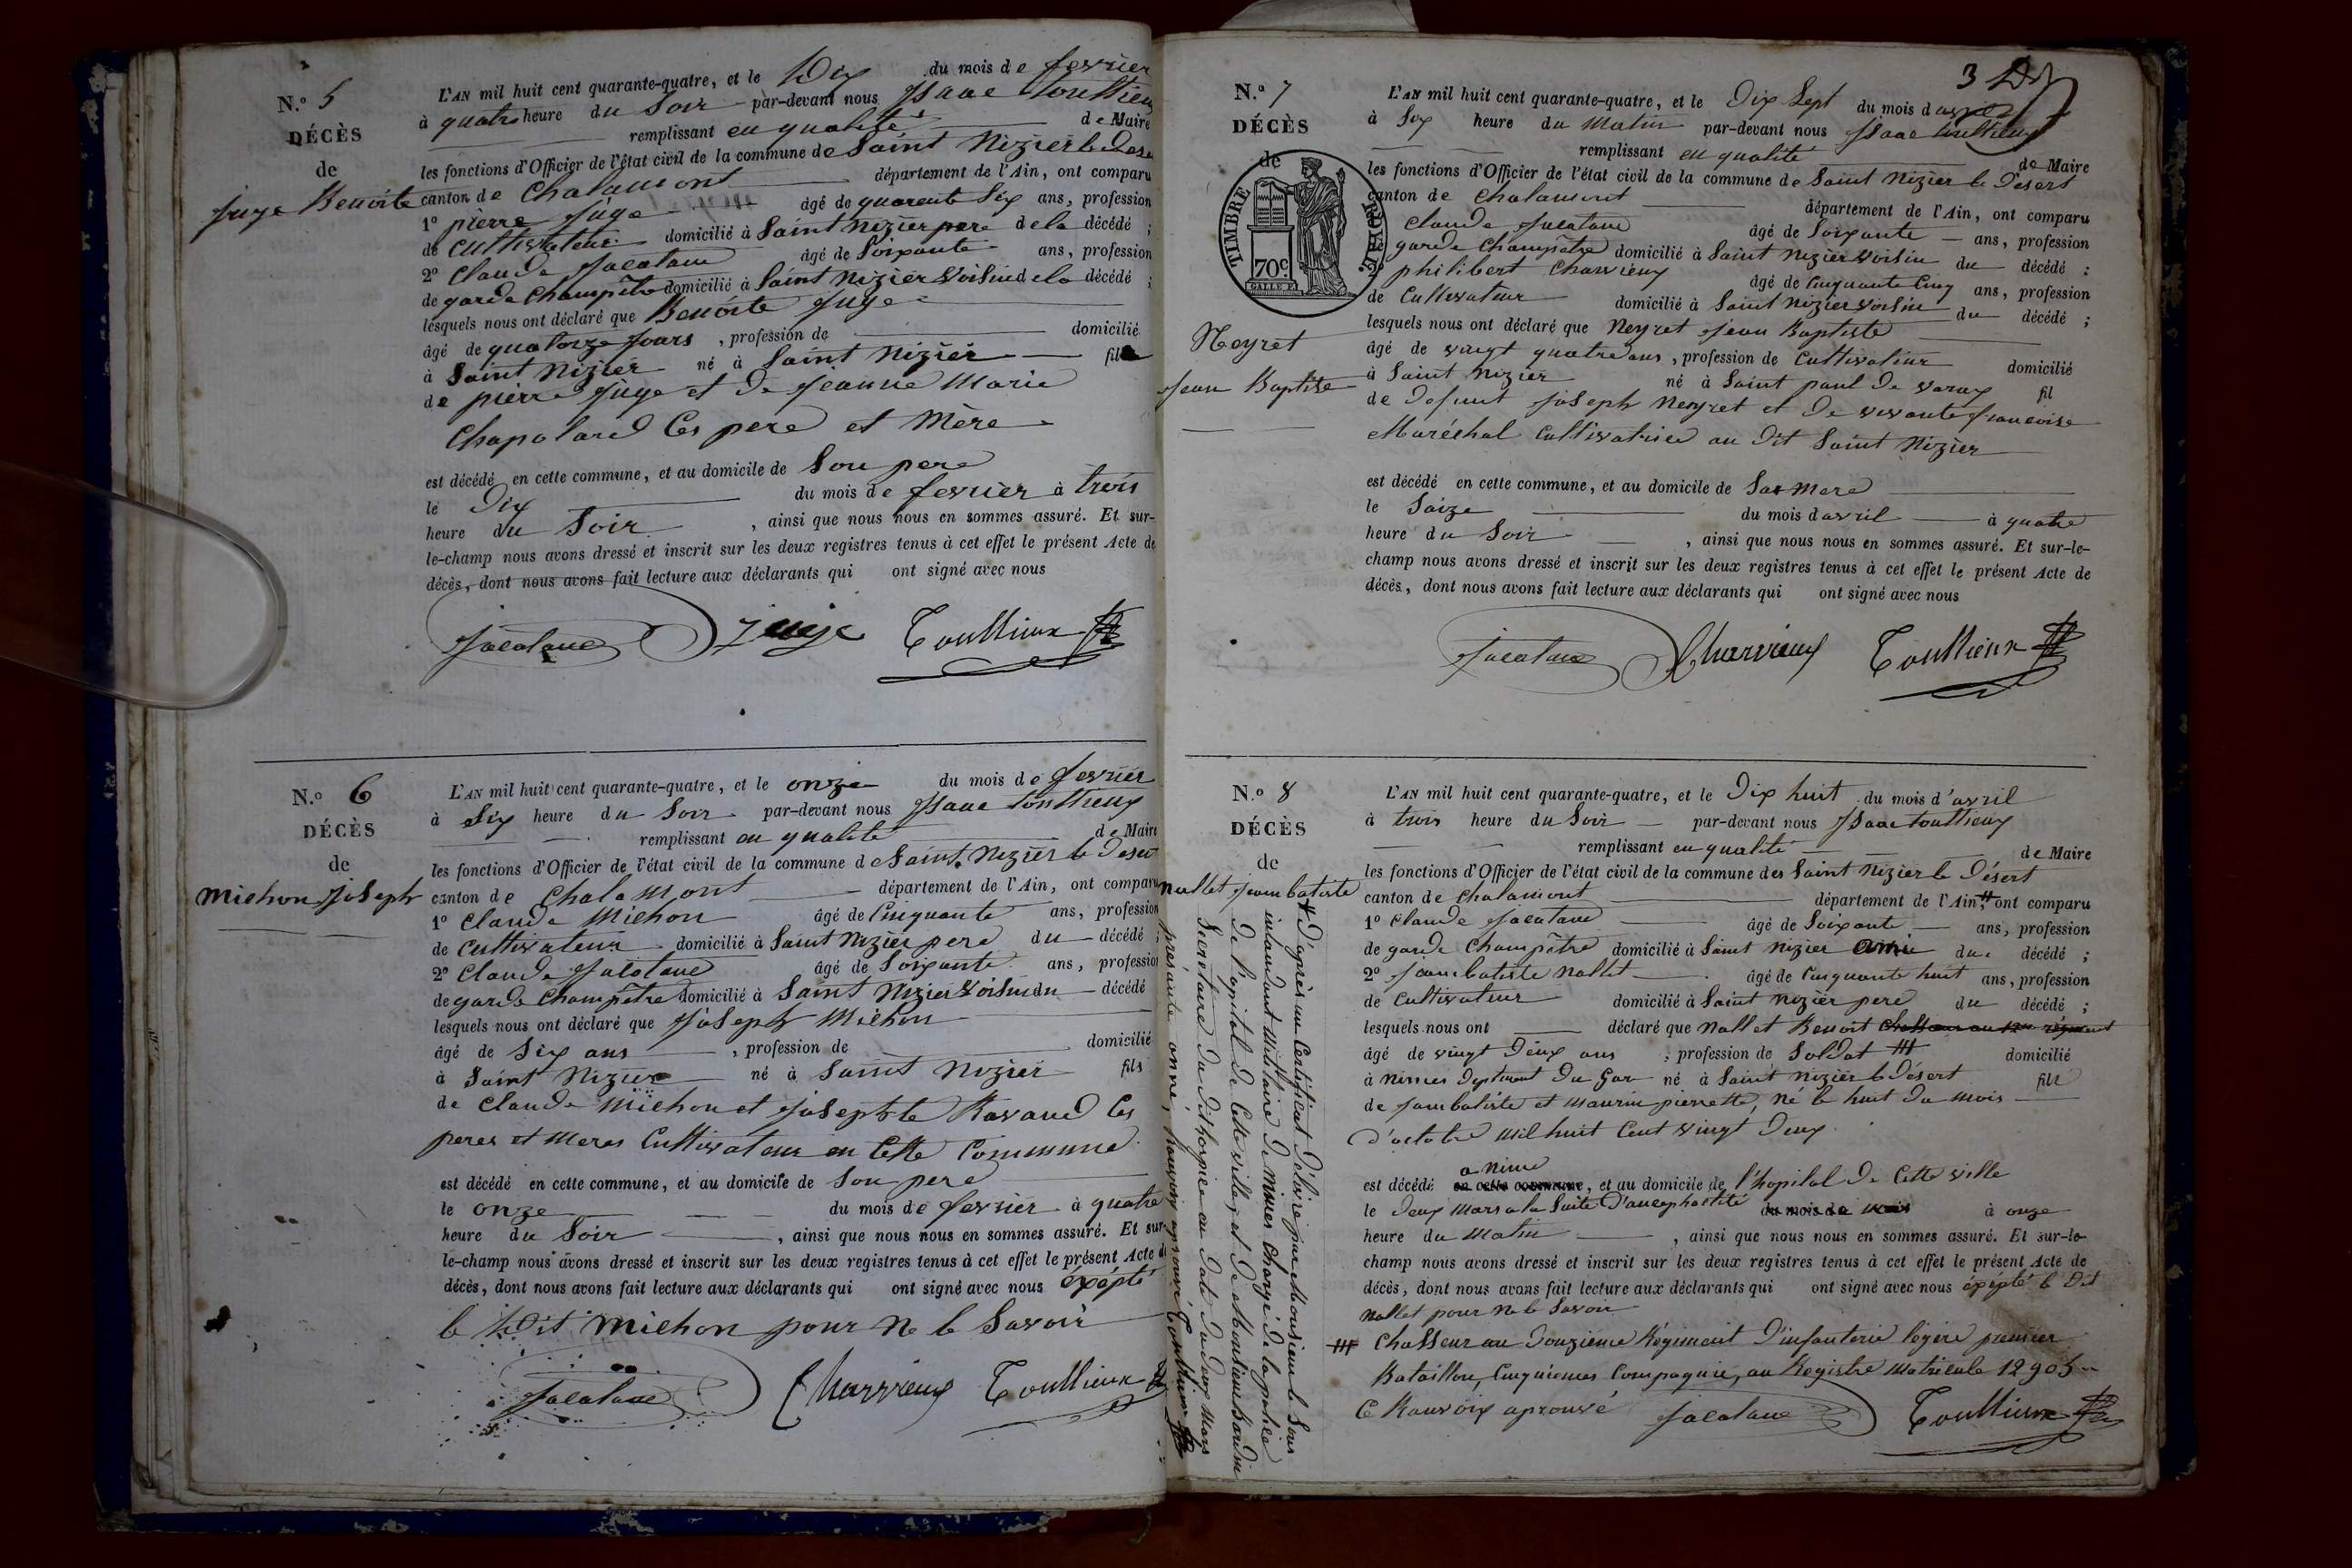 N.º 5
DÉCÈS
de
Juge Benoite
L'AN mil huit cent quarante-quatre, et le Dix du mois de fevrier
à quatre heure du Soir par-devant nous Isaac touttieux
remplissant en qualité de Maire
les fonctions d'Officier de l'état civil de la commune de Saint Nizier le Dese
canton de Chalamont département de l'Ain, ont comparu
1º pierre Juge âgé de quarente Six ans, profession
de Cultivateur domicilié à Saint Nizier pere de la décédé ;
2º Claude Jacatane âgé de Soixante ans, profession
de garde Champêtre domicilié à Saint Nizier Voisin de la décédé ;
lesquels nous ont déclaré que Benoite Juge
âgé de quatorze Jours , profession de domicilié
à Saint Nizier né à Saint Nizier fil
de pierre Juge et de Jeanne Marie
Chapolard Ces pere et Mère
est décédé en cette commune, et au domicile de Son pere
le Dix du mois de fevrier à trois
heure du Soir , ainsi que nous nous en sommes assuré. Et sur-
le-champ nous avons dressé et inscrit sur les deux registres tenus à cet effet le présent Acte de
décès, dont nous avons fait lecture aux déclarants qui ont signé avec nous
Jacatane Juge Touttieux
N.º 6
DÉCÈS
de
Michon Joseph
L'AN mil huit cent quarante-quatre, et le onze du mois de fevrier
à Six heure du Soir par-devant nous Isaac touttieux
remplissant en qualité de Maire
les fonctions d'Officier de l'état civil de la commune de Saint Nizier le Desert
canton de Chalamont département de l'Ain, ont comparu
1º Claude Michon âgé de Cinquante ans, profession
de Cultivateur domicilié à Saint Nizier pere du décédé ;
2º Claude Jacatane âgé de Soixante ans, profession
de garde Champêtre domicilié à Saint Nizier Voisin du décédé
lesquels nous ont déclaré que Joseph Michon
âgé de Six ans , profession de domicilié
à Saint Nizier né à Saint Nizier fils
de Claude Michon et Josephte Ravaud Ces
peres et Meres Cultivateur en Cette Commune
est décédé en cette commune, et au domicile de Son pere
le onze du mois de fevrier à quatre
heure du Soir , ainsi que nous nous en sommes assuré. Et sur-
le-champ nous avons dressé et inscrit sur les deux registres tenus à cet effet le présent Acte de
décès, dont nous avons fait lecture aux déclarants qui ont signé avec nous éxépté
le Dit Michon pour ne le Savoir
Jacatane Charvieux Touttieux
3
N.º 7
DÉCÈS
de
TIMBRE ROYAL
70c.
Neyret
Jean Baptiste
L'AN mil huit cent quarante-quatre, et le Dix Sept du mois d'avril
à Six heure du Matin par-devant nous Isaac touttieux
remplissant en qualité de Maire
les fonctions d'Officier de l'état civil de la commune de Saint Nizier le Desert
canton de Chalamont département de l'Ain, ont comparu
Claude Jacatane âgé de Soixante ans, profession
garde Champêtre domicilié à Saint Nizier Voisin du décédé ;
philibert Charvieux âgé de Cinquante Cinq ans, profession
de Cultivateur domicilié à Saint Nizier Voisin du décédé ;
lesquels nous ont déclaré que Neyret Jean Baptiste
âgé de vingt quatre ans , profession de Cultivateur domicilié
à Saint Nizier né à Saint paul de varax fil
de defunt Joseph Neyret et de vivante francoise
Maréchal Cultivatrice au Dit Saint Nizier
est décédé en cette commune, et au domicile de Sa Mere
le Saize du mois d'avril à quatre
heure du Soir , ainsi que nous nous en sommes assuré. Et sur-le-
champ nous avons dressé et inscrit sur les deux registres tenus à cet effet le présent Acte de
décès, dont nous avons fait lecture aux déclarants qui ont signé avec nous
Jacatane Charvieux Touttieux
N.º 8
DÉCÈS
de
Nallet Jean batiste
L'AN mil huit cent quarante-quatre, et le Dix huit du mois d'avril
à trois heure du Soir par-devant nous Isaac touttieux
remplissant en qualité de Maire
les fonctions d'Officier de l'état civil de la commune des Saint Nizier le Désert
canton de Chalamont département de l'Ain, ont comparu
1º Claude Jacatane âgé de Soixante ans, profession
de garde Champêtre domicilié à Saint Nizier ami du décédé ;
2º Jean batiste Nallet âgé de Cinquante huit ans, profession
de Cultivateur domicilié à Saint Nizier pere du décédé ;
lesquels nous ont déclaré que Nallet Benoit Chasseur au 12me régiment
âgé de vingt Deux ans ; profession de Soldat domicilié
à Nimes Deptment Du Gar né à Saint Nizier le Désert fils
de Jean batiste et Maurin pierrette, né le huit du mois
d'octobre Mil huit Cent vingt Deux
a Nime
est décédé en cette commune, et au domicile de l'hopital de Cette ville
le Deux Mars a la Suite D'ancephactité du mois de mars à onze
heure du Matin , ainsi que nous nous en sommes assuré. Et sur-le-
champ nous avons dressé et inscrit sur les deux registres tenus à cet effet le présent Acte de
décès, dont nous avons fait lecture aux déclarants qui ont signé avec nous éxépté le Dit
Nallet pour ne le Savoir
Chasseur au Douzieme Régiment D'infanterie légère premier
Bataillon, Cinquiemes Compagnie, au Registre Matricule 12905
Ce Ranvoix aprouvé Jacatane Touttieux
D'après un Certificat Délivré par Monsieur le Sous
intandant Militaire De Nimes Chargé De la police
De l'hopital De Cette ville, et De Monsieur Bardin
Secretaire Du Dit hospice en Date Du Deux Mars
présente année, Ranvoix aprouvé Touttieux